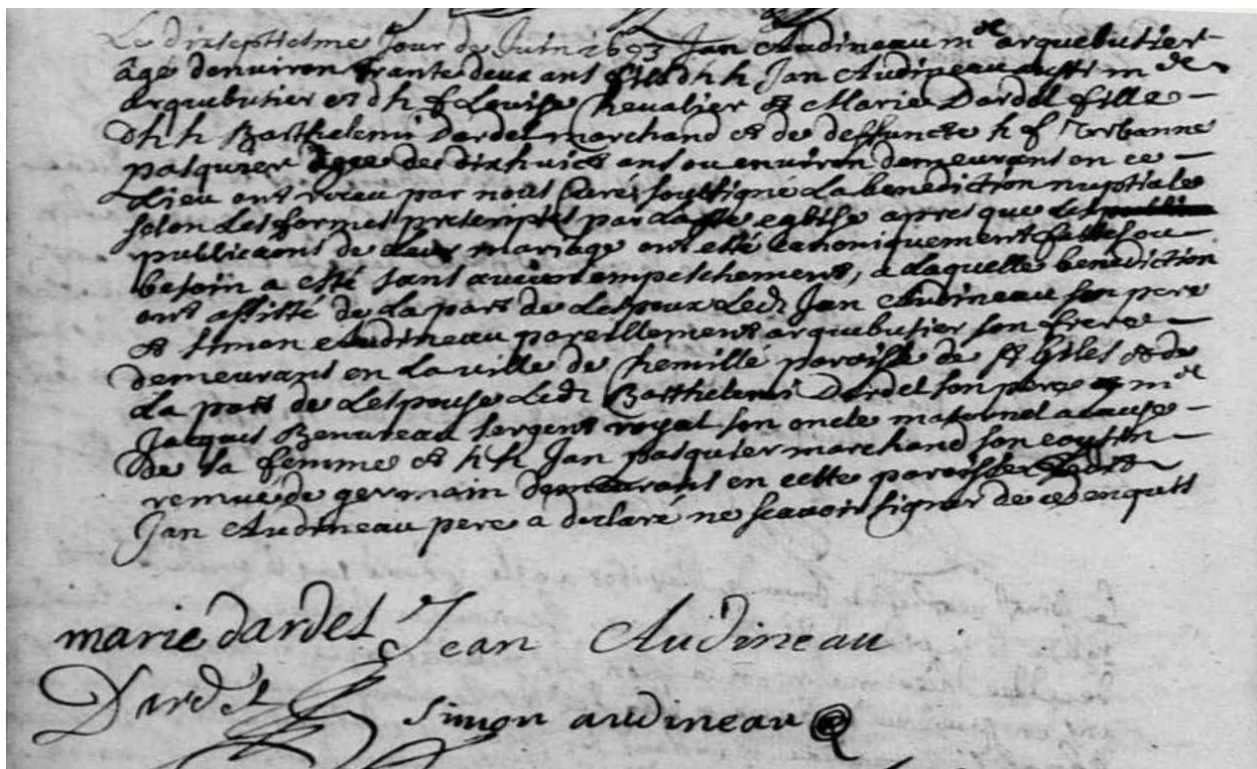 Le dixseptiesme Jour de Juin 1693 Jan Audineau m^e arquebutier
âgé denviron trante deux ans fils dh h Jan Audineau aussi m^e
arquebutier et dh f Louise Chevalier et Marie Dardel fille
dh h Barthelemi Dardel marchand et de deffuncte h f Urbanne
pasquier âgee de dixhuict ans ou environ demeurant en ce
Lieu ont receu par nous Curé soussigné La benediction nuptiale
selon Les formes prescriptes par La ste eglise apres que Les
publicaons de Leur mariage ont esté canoniquement faites ou
besoin a esté sans aucun empeschement, a Laquelle benediction
ont assisté de La part de Lespoux Ledt Jan Audineau son pere
et simon Audineau pareillement arquebutier son frere
demeurant en La ville de Chemille paroisse de st Giles et de
La part de Lespouse Ledt Barthelemi Dardel son pere et m^e
Jacques Benureau sergent royal son oncle maternel a cause
de sa femme et h h Jan pasquier marchand son cousin
remué de germain demeurant en cette paroisse Ledit
Jan Audineau pere a declaré ne scavoir signer de ce enquis
marie dardel Jean Audineau
Dardel simon audineau